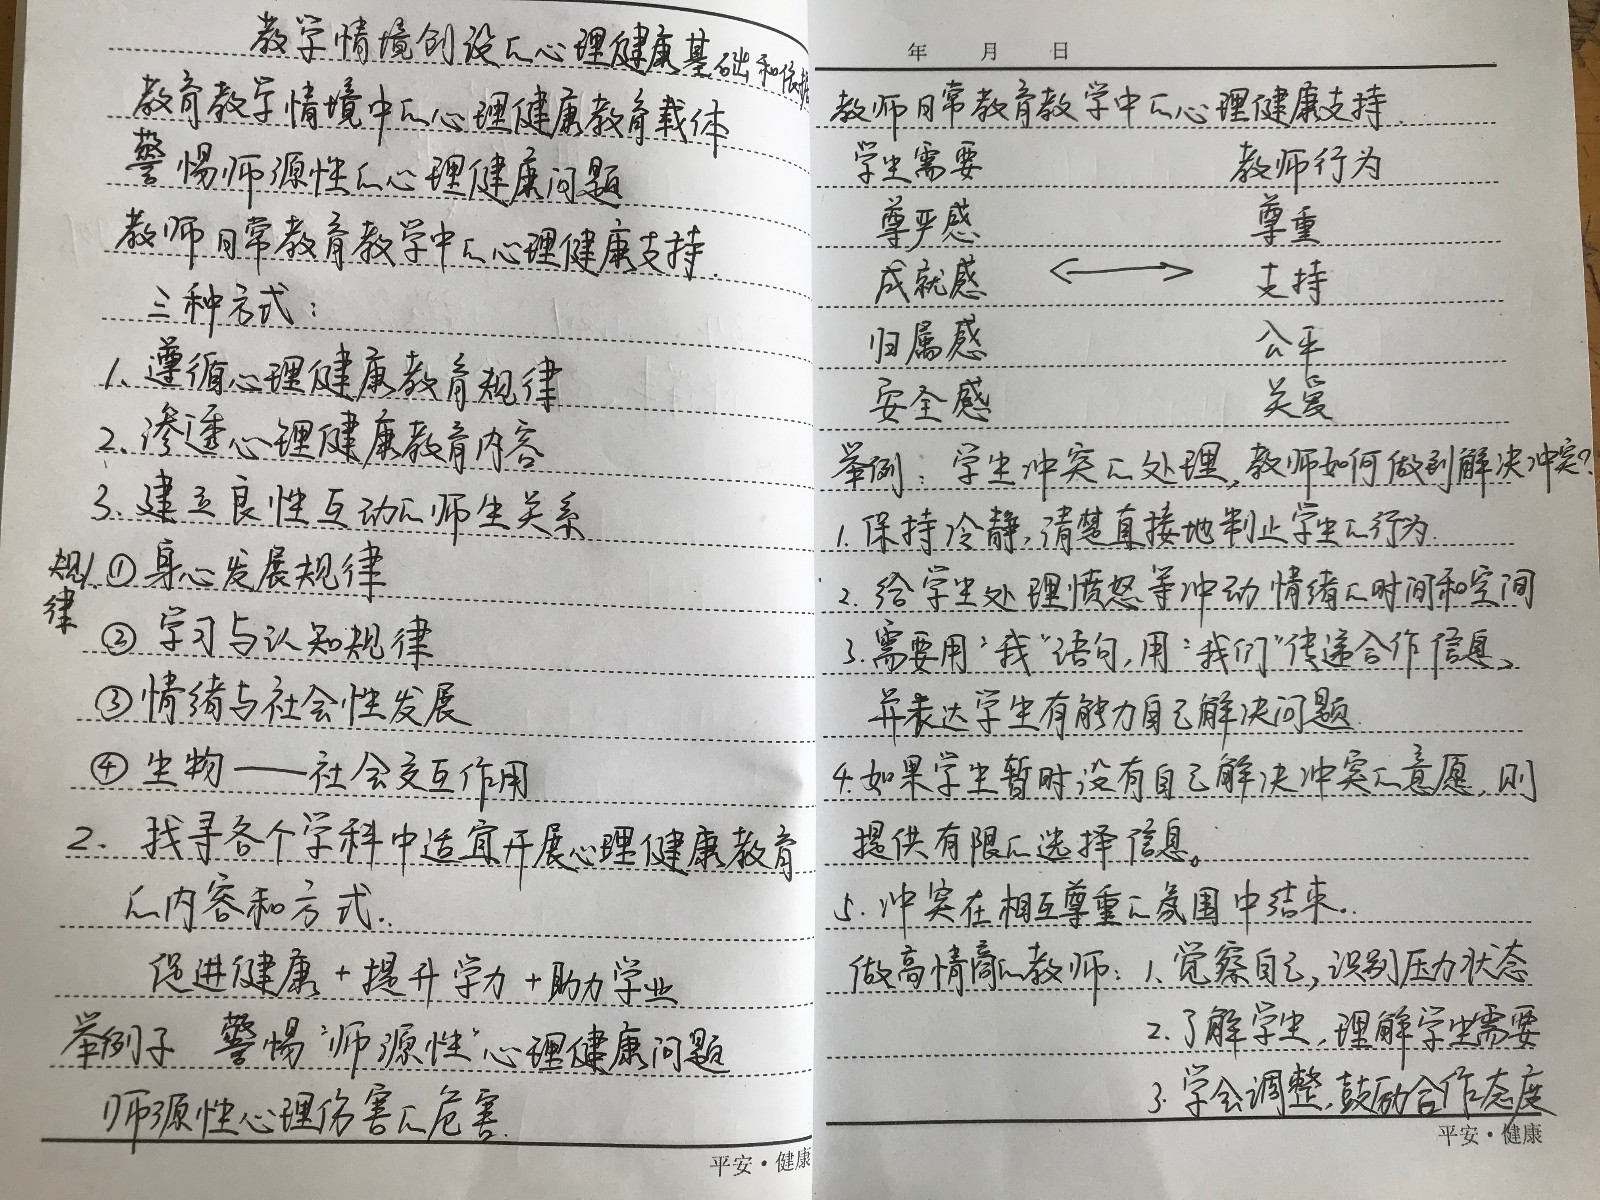 教学情境创设的心理健康基础和依据
教育教学情境中的心理健康教育载体
警惕师源性的心理健康问题
教师日常教育教学中的心理健康支持.
三种方式：
1. 遵循心理健康教育规律
2. 渗透心理健康教育内容
3. 建立良性互动的师生关系
规律 ① 身心发展规律
② 学习与认知规律
③ 情绪与社会性发展
④ 生物——社会交互作用
2. 找寻各个学科中适宜开展心理健康教育
的内容和方式.
促进健康+提升学力+助力学业
举例子 警惕“师源性”心理健康问题
师源性心理伤害的危害.
平安·健康
年 月 日
教师日常教育教学中的心理健康支持.
学生需要 教师行为
尊严感 尊重
成就感 ⟷ 支持
归属感 公平
安全感 关爱
举例：学生冲突的处理,教师如何做到解决冲突?
1. 保持冷静,清楚直接地制止学生的行为.
2. 给学生处理愤怒等冲动情绪的时间和空间
3. 需要用“我”语句,用“我们”传递合作信息、
并表达学生有能力自己解决问题.
4. 如果学生暂时没有自己解决冲突的意愿,则
提供有限的选择信息。
5. 冲突在相互尊重的氛围中结束.
做高情商的教师：1. 觉察自己,识别压力状态
2. 了解学生,理解学生需要
3. 学会调整,鼓励合作态度
平安·健康